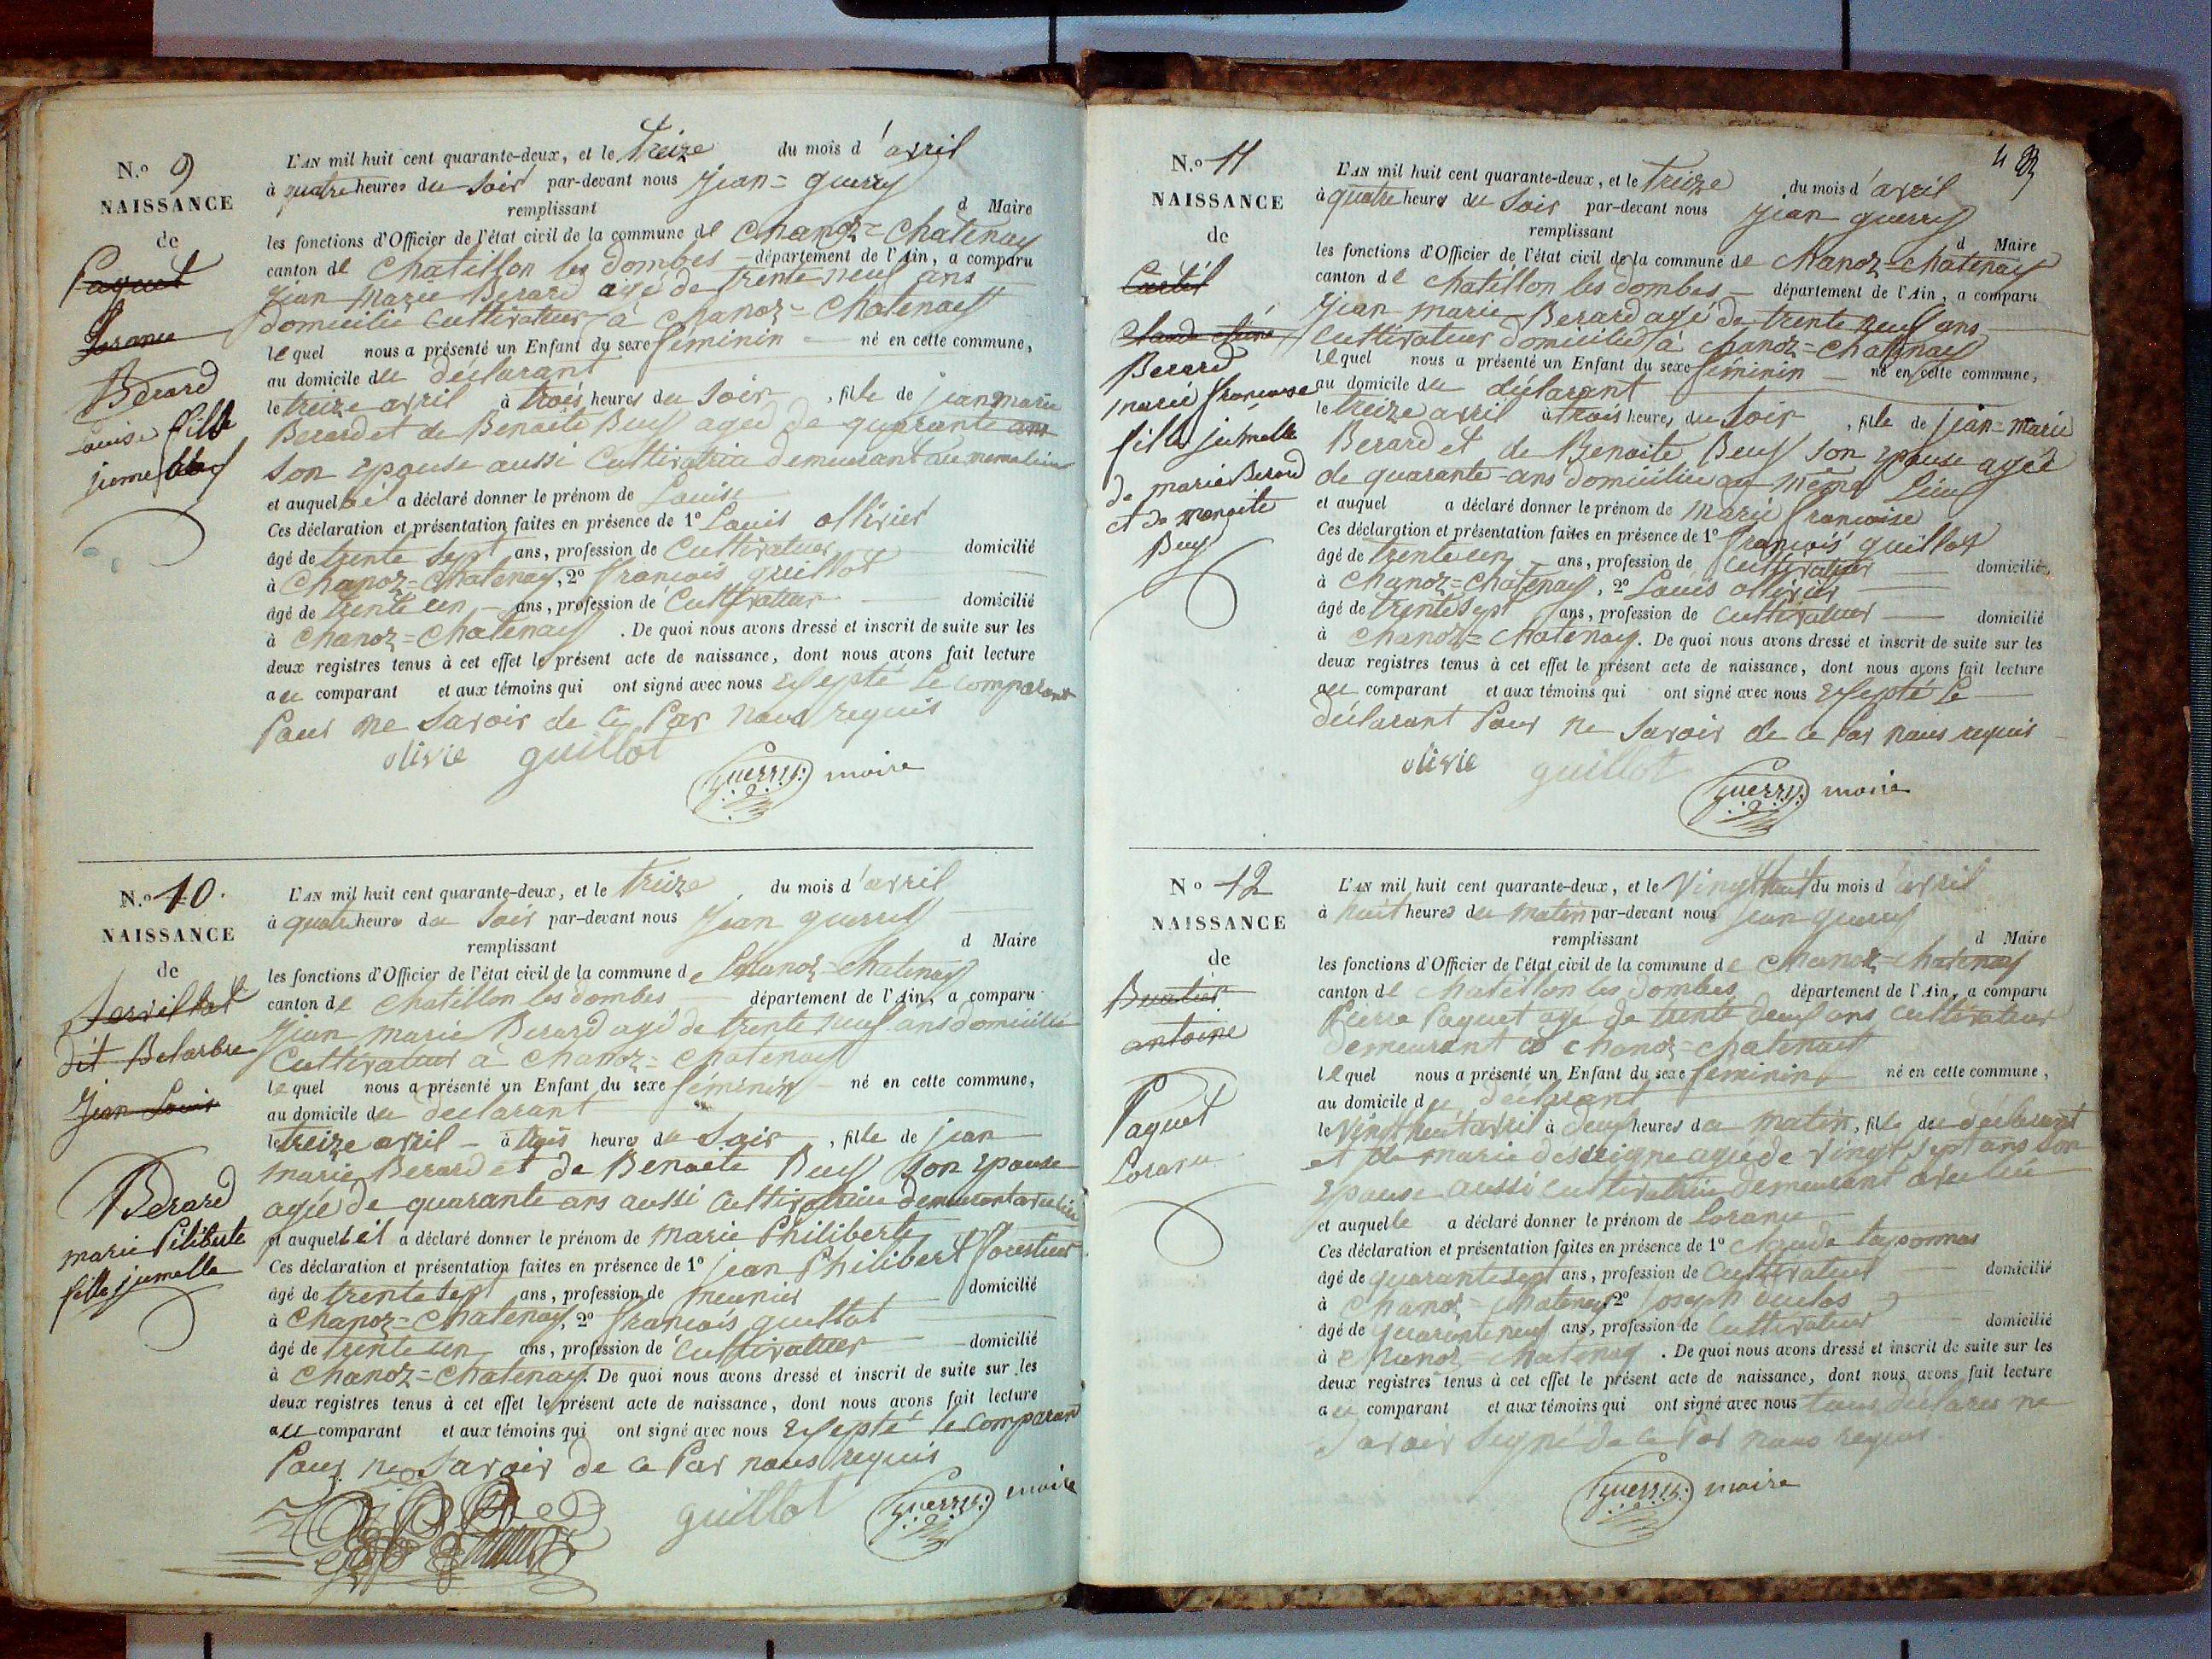 N.o 9
NAISSANCE
de
Paquet
Lorance
Berard
Louise fille
jumelle
L'AN mil huit cent quarante-deux, et le treize du mois d'avril
à quatre heures du Soir par-devant nous Jean = guerry
remplissant d Maire
les fonctions d'Officier de l'état civil de la commune de Chanoz = Chatenay
canton de Chatillon les dombes département de l'Ain, a comparu
Jean Marie Berard agé de trente neuf ans
domicilié Cultivateur à Chanoz = Chatenay
lequel nous a présenté un Enfant du sexe féminin né en cette commune,
au domicile du déclarant
le treize avril à trois heures du Soir, fille de jean marie
Berard et de Benoite Beuf ageé de quarante ans
Son Epouse aussi Cultivatrice demeurant au meme lieu
et auquel il a déclaré donner le prénom de Louise
Ces déclaration et présentation faites en présence de 1o Louis ollivier
âgé de trente sept ans, profession de Cultivateur domicilié
à Chanoz = Chatenay, 2o françois guillot
âgé de trente un ans, profession de Cultivateur domicilié
à Chanoz = Chatenay. De quoi nous avons dressé et inscrit de suite sur les
deux registres tenus à cet effet le présent acte de naissance, dont nous avons fait lecture
au comparant et aux témoins qui ont signé avec nous Exsepté le comparant
Pour ne Savoir de ce Par nous requis
olivie guillot Guerry maire
N.o 10.
NAISSANCE
de
dit Belarbre
Jean Louis
Berard
marie Piliberte
fille jumelle
L'AN mil huit cent quarante-deux, et le treize du mois d'avril
à quatre heures du Soir par-devant nous Jean guerry
remplissant d Maire
les fonctions d'Officier de l'état civil de la commune de Chanoz = Chatenay
canton de Chatillon les dombes département de l'Ain, a comparu
Jean marie Berard agé de trente neuf ans domicilié
Cultivateur à Chanoz = Chatenay
lequel nous a présenté un Enfant du sexe féminin né en cette commune,
au domicile du déclarant
le treize avril à trois heures du Soir, fille de jean
marie Berard et de Benoite Beuf Son Epouse
agée de quarante ans aussi Cultivatrice demeurant
et auquel il a déclaré donner le prénom de marie Philiberte
Ces déclaration et présentation faites en présence de 1o jean Philibert forestier
âgé de trente sept ans, profession de meunier domicilié
à Chanoz = Chatenay, 2o françois guillot
âgé de trente un ans, profession de Cultivateur domicilié
à Chanoz = Chatenay. De quoi nous avons dressé et inscrit de suite sur les
deux registres tenus à cet effet le présent acte de naissance, dont nous avons fait lecture
au comparant et aux témoins qui ont signé avec nous Exsepté le comparan
Pour ne Savoir de ce Par nous requis
guillot Guerry maire
N.o 11
NAISSANCE
de
Cartel
Berard
marie françoise
fille jumelle
de marie Berard
et de Benoite
Beuf
L'AN mil huit cent quarante-deux, et le treize du mois d'avril
à quatre heures du Soir par-devant nous Jean guerry
remplissant d Maire
les fonctions d'Officier de l'état civil de la commune de Chanoz = Chatenay
canton de Chatillon les dombes département de l'Ain, a comparu
Jean marie Berard agé de trente neuf ans
Cultivateur domicilié à Chanoz = Chatenay
lequel nous a présenté un Enfant du sexe féminin né en cette commune,
au domicile du déclarant
le treize avril à trois heures du Soir, fille de jean = marie
Berard et de Benoite Beuf Son Epouse ageé
de quarante ans domiciliée au même Lieu
et auquel a déclaré donner le prénom de Marie françoise
Ces déclaration et présentation faites en présence de 1o françois guillot
âgé de trente un ans, profession de Cultivateur domicilié
à Chanoz = Chatenay, 2o Louis ollivier
âgé de trente Sept ans, profession de Cultivateur domicilié
à Chanoz = Chatenay. De quoi nous avons dressé et inscrit de suite sur les
deux registres tenus à cet effet le présent acte de naissance, dont nous avons fait lecture
au comparant et aux témoins qui ont signé avec nous Exsepté le
déclarant Pour ne Savoir de ce Par nous requis
olivie guillot Guerry maire
N.o 12
NAISSANCE
de
antoine
Paquet
Lorance
L'AN mil huit cent quarante-deux, et le Vingt huit du mois d'avril
à huit heures du matin par-devant nous Jean guerry
remplissant d Maire
les fonctions d'Officier de l'état civil de la commune de Chanoz = Chatenay
canton de Chatillon les dombes département de l'Ain, a comparu
Pierre Paquet agé de trente deux ans Cultivateur
demeurant à Chanoz = Chatenay
lequel nous a présenté un Enfant du sexe féminin né en cette commune,
au domicile du déclarant
le Vingt huit avril à deux heures du matin, fille du déclarant
et de marie desseigne agée de Vingt Sept ans Son
Epouse aussi Cultivatrice demeurant
et auquelle a déclaré donner le prénom de Lorance
Ces déclaration et présentation faites en présence de 1o Claude taponnas
âgé de quarante sept ans, profession de Cultivateur domicilié
à Chanoz = Chatenay 2o Joseph duclos
âgé de quarante neuf ans, profession de Cultivateur domicilié
à Chanoz = Chatenay. De quoi nous avons dressé et inscrit de suite sur les
deux registres tenus à cet effet le présent acte de naissance, dont nous avons fait lecture
au comparant et aux témoins qui ont signé avec nous tous déclares ne
Savoir Signé de ce Par nous requis.
Guerry maire